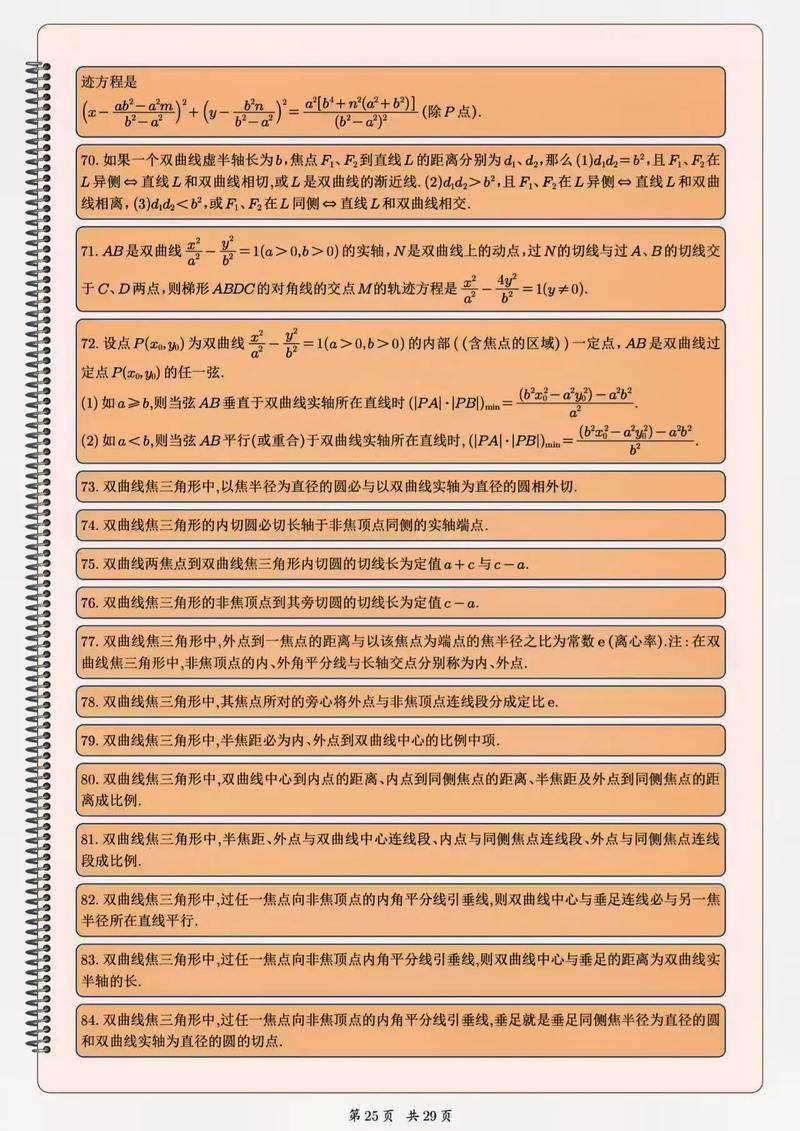 迹方程是
(x − (ab² − a²m)/(b² − a²))² + (y − b²n/(b² − a²))² = a²[b⁴ + n²(a² + b²)]/(b² − a²)² (除 P 点).
70. 如果一个双曲线虚半轴长为 b,焦点 F₁、F₂ 到直线 L 的距离分别为 d₁、d₂,那么 (1)d₁d₂ = b²,且 F₁、F₂ 在
L 异侧 ⇔ 直线 L 和双曲线相切,或 L 是双曲线的渐近线. (2)d₁d₂ > b²,且 F₁、F₂ 在 L 异侧 ⇔ 直线 L 和双曲
线相离, (3)d₁d₂ < b²,或 F₁、F₂ 在 L 同侧 ⇔ 直线 L 和双曲线相交.
71. AB 是双曲线 x²/a² − y²/b² = 1(a > 0,b > 0) 的实轴, N 是双曲线上的动点,过 N 的切线与过 A、B 的切线交
于 C、D 两点,则梯形 ABDC 的对角线的交点 M 的轨迹方程是 x²/a² − 4y²/b² = 1(y ≠ 0).
72. 设点 P(x₀,y₀) 为双曲线 x²/a² − y²/b² = 1(a > 0,b > 0) 的内部 ((含焦点的区域)) 一定点, AB 是双曲线过
定点 P(x₀,y₀) 的任一弦.
(1) 如 a ⩾ b,则当弦 AB 垂直于双曲线实轴所在直线时 (|PA|·|PB|)min = ((b²x₀² − a²y₀²) − a²b²)/a².
(2) 如 a < b,则当弦 AB 平行(或重合)于双曲线实轴所在直线时, (|PA|·|PB|)min = ((b²x₀² − a²y₀²) − a²b²)/b².
73. 双曲线焦三角形中,以焦半径为直径的圆必与以双曲线实轴为直径的圆相外切.
74. 双曲线焦三角形的内切圆必切长轴于非焦顶点同侧的实轴端点.
75. 双曲线两焦点到双曲线焦三角形内切圆的切线长为定值 a + c 与 c − a.
76. 双曲线焦三角形的非焦顶点到其旁切圆的切线长为定值 c − a.
77. 双曲线焦三角形中,外点到一焦点的距离与以该焦点为端点的焦半径之比为常数 e (离心率).注:在双
曲线焦三角形中,非焦顶点的内、外角平分线与长轴交点分别称为内、外点.
78. 双曲线焦三角形中,其焦点所对的旁心将外点与非焦顶点连线段分成定比 e.
79. 双曲线焦三角形中,半焦距必为内、外点到双曲线中心的比例中项.
80. 双曲线焦三角形中,双曲线中心到内点的距离、内点到同侧焦点的距离、半焦距及外点到同侧焦点的距
离成比例.
81. 双曲线焦三角形中,半焦距、外点与双曲线中心连线段、内点与同侧焦点连线段、外点与同侧焦点连线
段成比例.
82. 双曲线焦三角形中,过任一焦点向非焦顶点的内角平分线引垂线,则双曲线中心与垂足连线必与另一焦
半径所在直线平行.
83. 双曲线焦三角形中,过任一焦点向非焦顶点内角平分线引垂线,则双曲线中心与垂足的距离为双曲线实
半轴的长.
84. 双曲线焦三角形中,过任一焦点向非焦顶点的内角平分线引垂线,垂足就是垂足同侧焦半径为直径的圆
和双曲线实轴为直径的圆的切点.
第 25 页 共 29 页